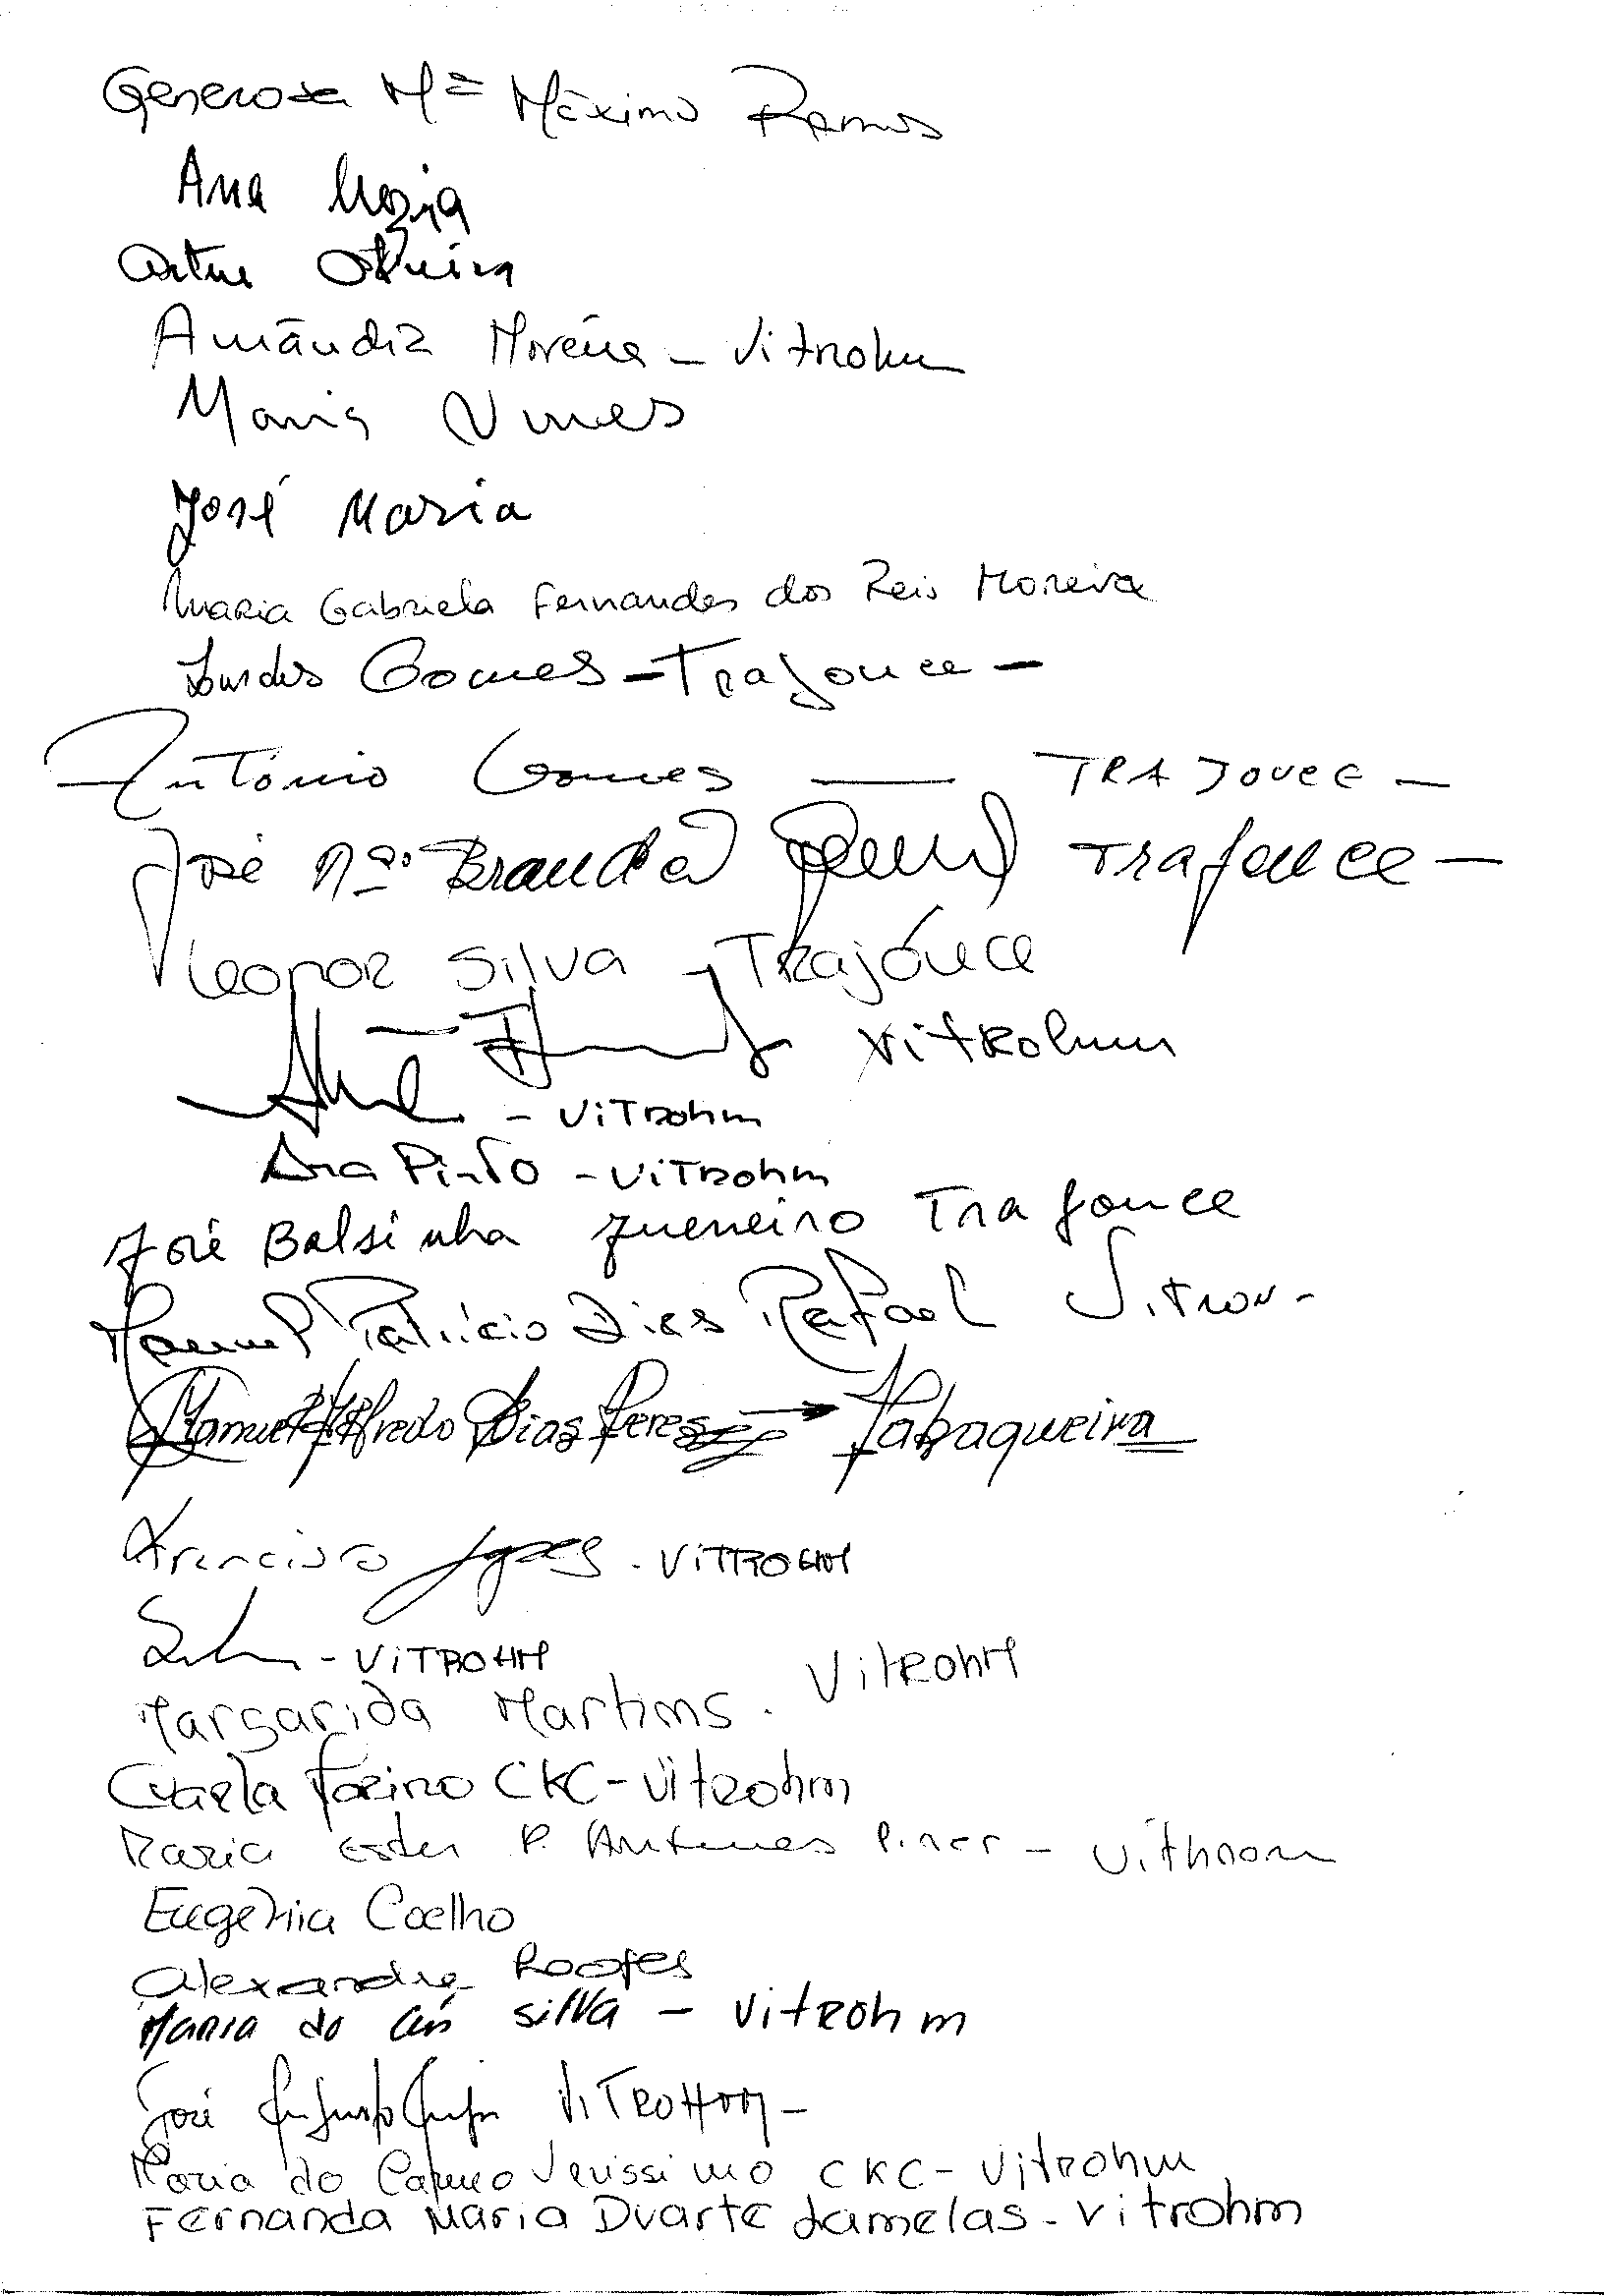 Generosa Mª Máximo Ramos
Ana
Artur Oliveira
Amândia Moreira - Vitrohm
Maria Nunes
José Maria
Maria Gabriela Fernandes dos Reis Moreira
Lurdes Gomes - Trajouce -
António Gomes — TRAJOUCE -
José Mª. Brandão Trajouce -
Leonor Silva - Trajouce
Vitrohm
- Vitrohm
Ana Pinto - Vitrohm
José Balsinha Trajouce
Manuel Patrício Dias Rafael Vitron -
Manuel Alfredo Dias Peres → Tabaqueira
Francisco Lopes - VITROHM
- VITROHM
Margarida Martins - VitrohM
Carla CKC - Vitrohm
Maria Ester P. Antunes -
Eugenia Coelho
Alexandre
Maria do Céu Silva - Vitrohm
José Augusto VITROHM -
Maria do Carmo Veríssimo CKC - Vitrohm
Fernanda Maria Duarte Lamelas - Vitrohm